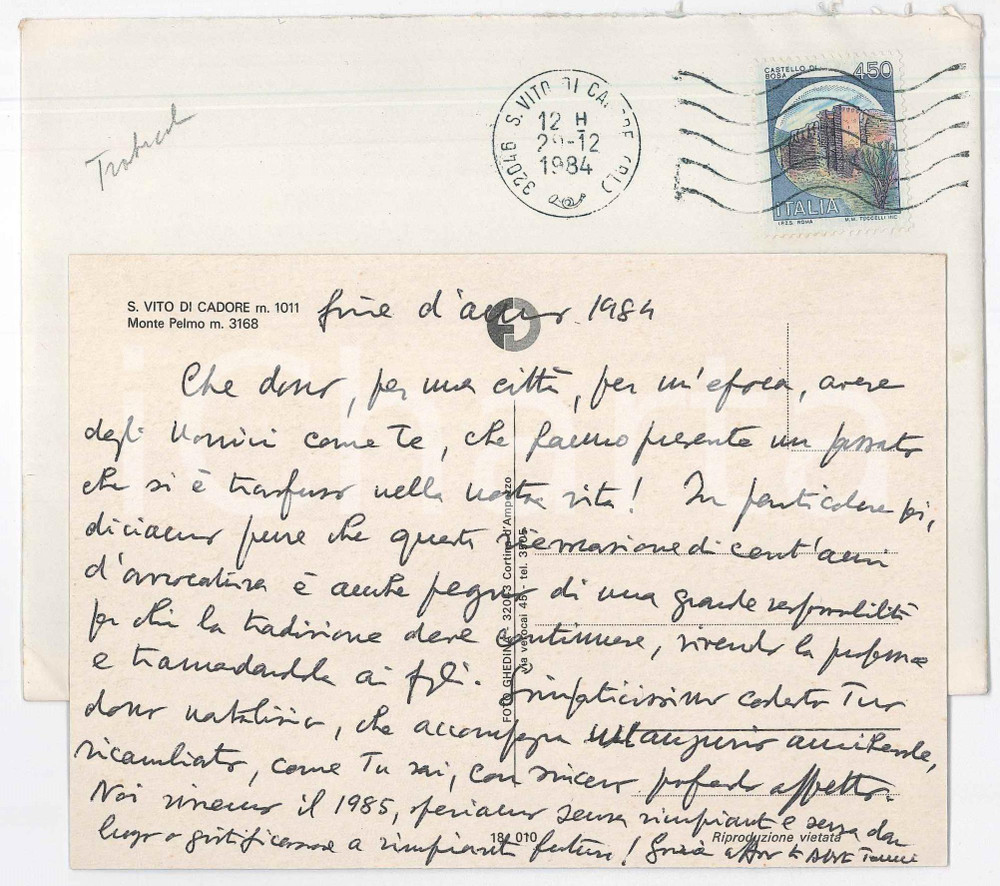 CASTELLO DI
BOSA
450
ITALIA
I.P.Z.S. ROMA
M.M. TOCCELLI INC.
32046 S. VITO DI CADORE (BL)
12 H
29-12
1984
S. VITO DI CADORE m. 1011
Monte Pelmo m. 3168
fine d'anno 1984
Che dono, per una città, per un'epoca, avere
degli uomini come Te, che fanno presente un passato
che si è trasfuso nella nostra vita! In particolare poi,
diciamo pure che questa rievocazione di cent'anni
d'avvocatura è anche pegno di una grande responsabilità
per chi la tradizione deve continuare, vivendo la professione
e tramandandola ai figli. Simpaticissimo codesto Tuo
dono natalizio, che accompagna augurio amichevole,
ricambiato, come Tu sai, con sincero profondo affetto.
Noi vivremo il 1985, speriamo senza rimpianti e senza dar
luogo o giustificazione a rimpianti futuri!
FOTO GHEDINA - 32043 Cortina d'Ampezzo
via verocai 46 - tel. 3905
181 010
Riproduzione vietata
iCharta